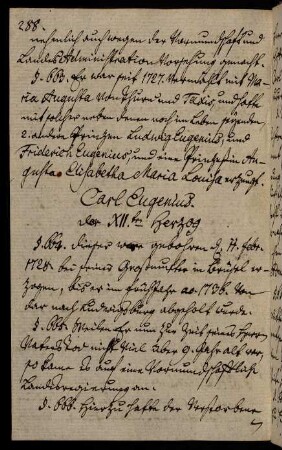 288.
nehmlich auch wegen der Vormundschaft und
Landes Administration Vorsehung gemacht.
§. 663. Er war seit 1727. vermählt mit Ma-
ria Augusta von Thurn und Taxis, und hatte
mit solcher neben denen noch im Leben seyenden
2. andern Prinzen Ludwig Eugenius, und
Friderich Eugenius, und eine Prinzeßin Au-
gusta Elisabetha Maria Louisa erzeugt.
Carl Eugenius.
der XII.te Herzog
§. 664. Dieser ware gebohren d. 11. Febr.
1728. bei seiner Großmutter in Brüßel er-
zogen, bis er im Frühjahr ao. 1736. von
dar nach Ludwigsburg abgeholt wurde.
§. 665. Weilen er nun zur Zeit seines Herrn
Vaters Tod nicht viel über 9. Jahr alt war,
so kame es auf eine Vormundschaftliche
Landesregierung an.
§. 666. Hierzu hatte der Verstorbene